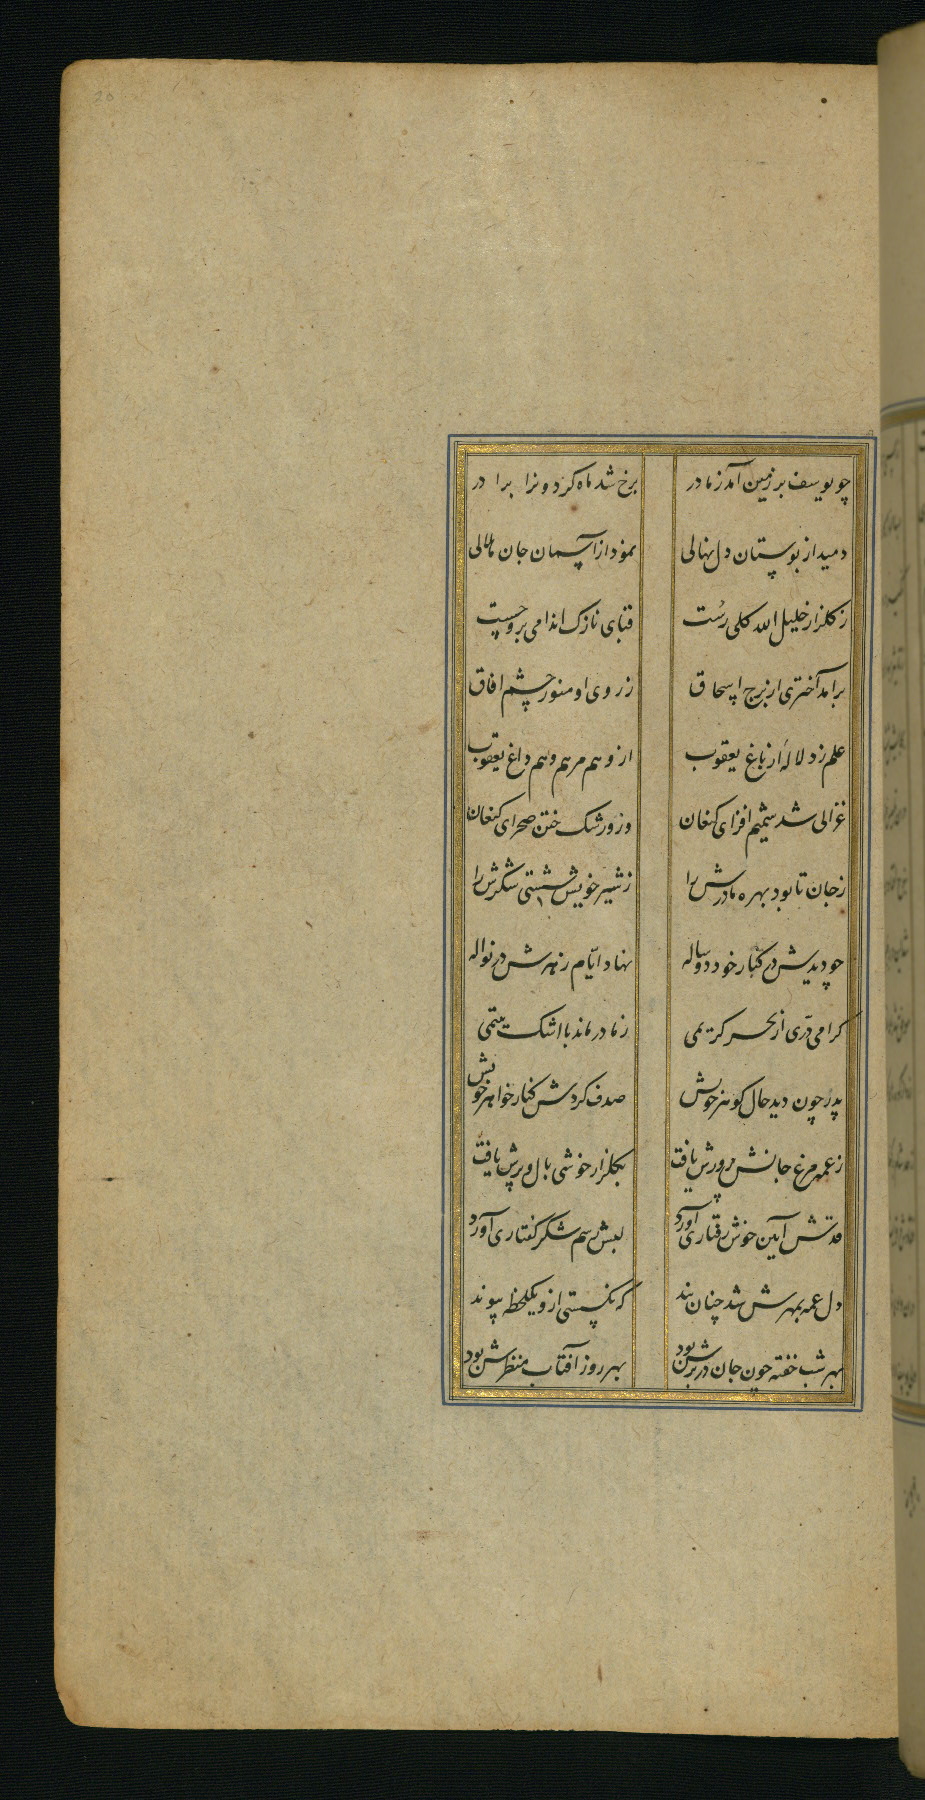 چو یوسف بر زمین آمد ز مادر برخ شد ماه کردونرا برادر
دمید از بوستان دل نهالی نمود از آسمان جان هلالی
ز کلزار خلیل الله کلی رست قبای نازک اندامی برو چست
برامد اختری از برج اسحاق ز روی او منور چشم افاق
علم زد لالهٔ از باغ یعقوب ازو هم مرهم و هم داغ یعقوب
غزالی شد شمیم افزای کنعان وزو رشک ختن صحرای کنعان
ز جان تا بود بهره مادرش را ز شیر خویش شستی شکرش را
چو دیدش در کنار خود دو ساله نهاد ایّام زهرش در نواله
کرامی درّی از بحر کریمی ز مادر ماند با اشک یتیمی
پدر چون دید حال کوهر خویش صدف کردش کنار خواهر خویش
ز عمه مرغ جانش پرورش یافت بکلزار خوشی بال و پرش یافت
قدش آیین خوش رفتاری آورد لبش رسم شکر کفتاری آورد
دل عمه بمهرش شد چنان بند که نکسستی ازو یکلحظه پیوند
بهر شب خفته چون جان در برش بود بهر روز آفتاب منظرش بود